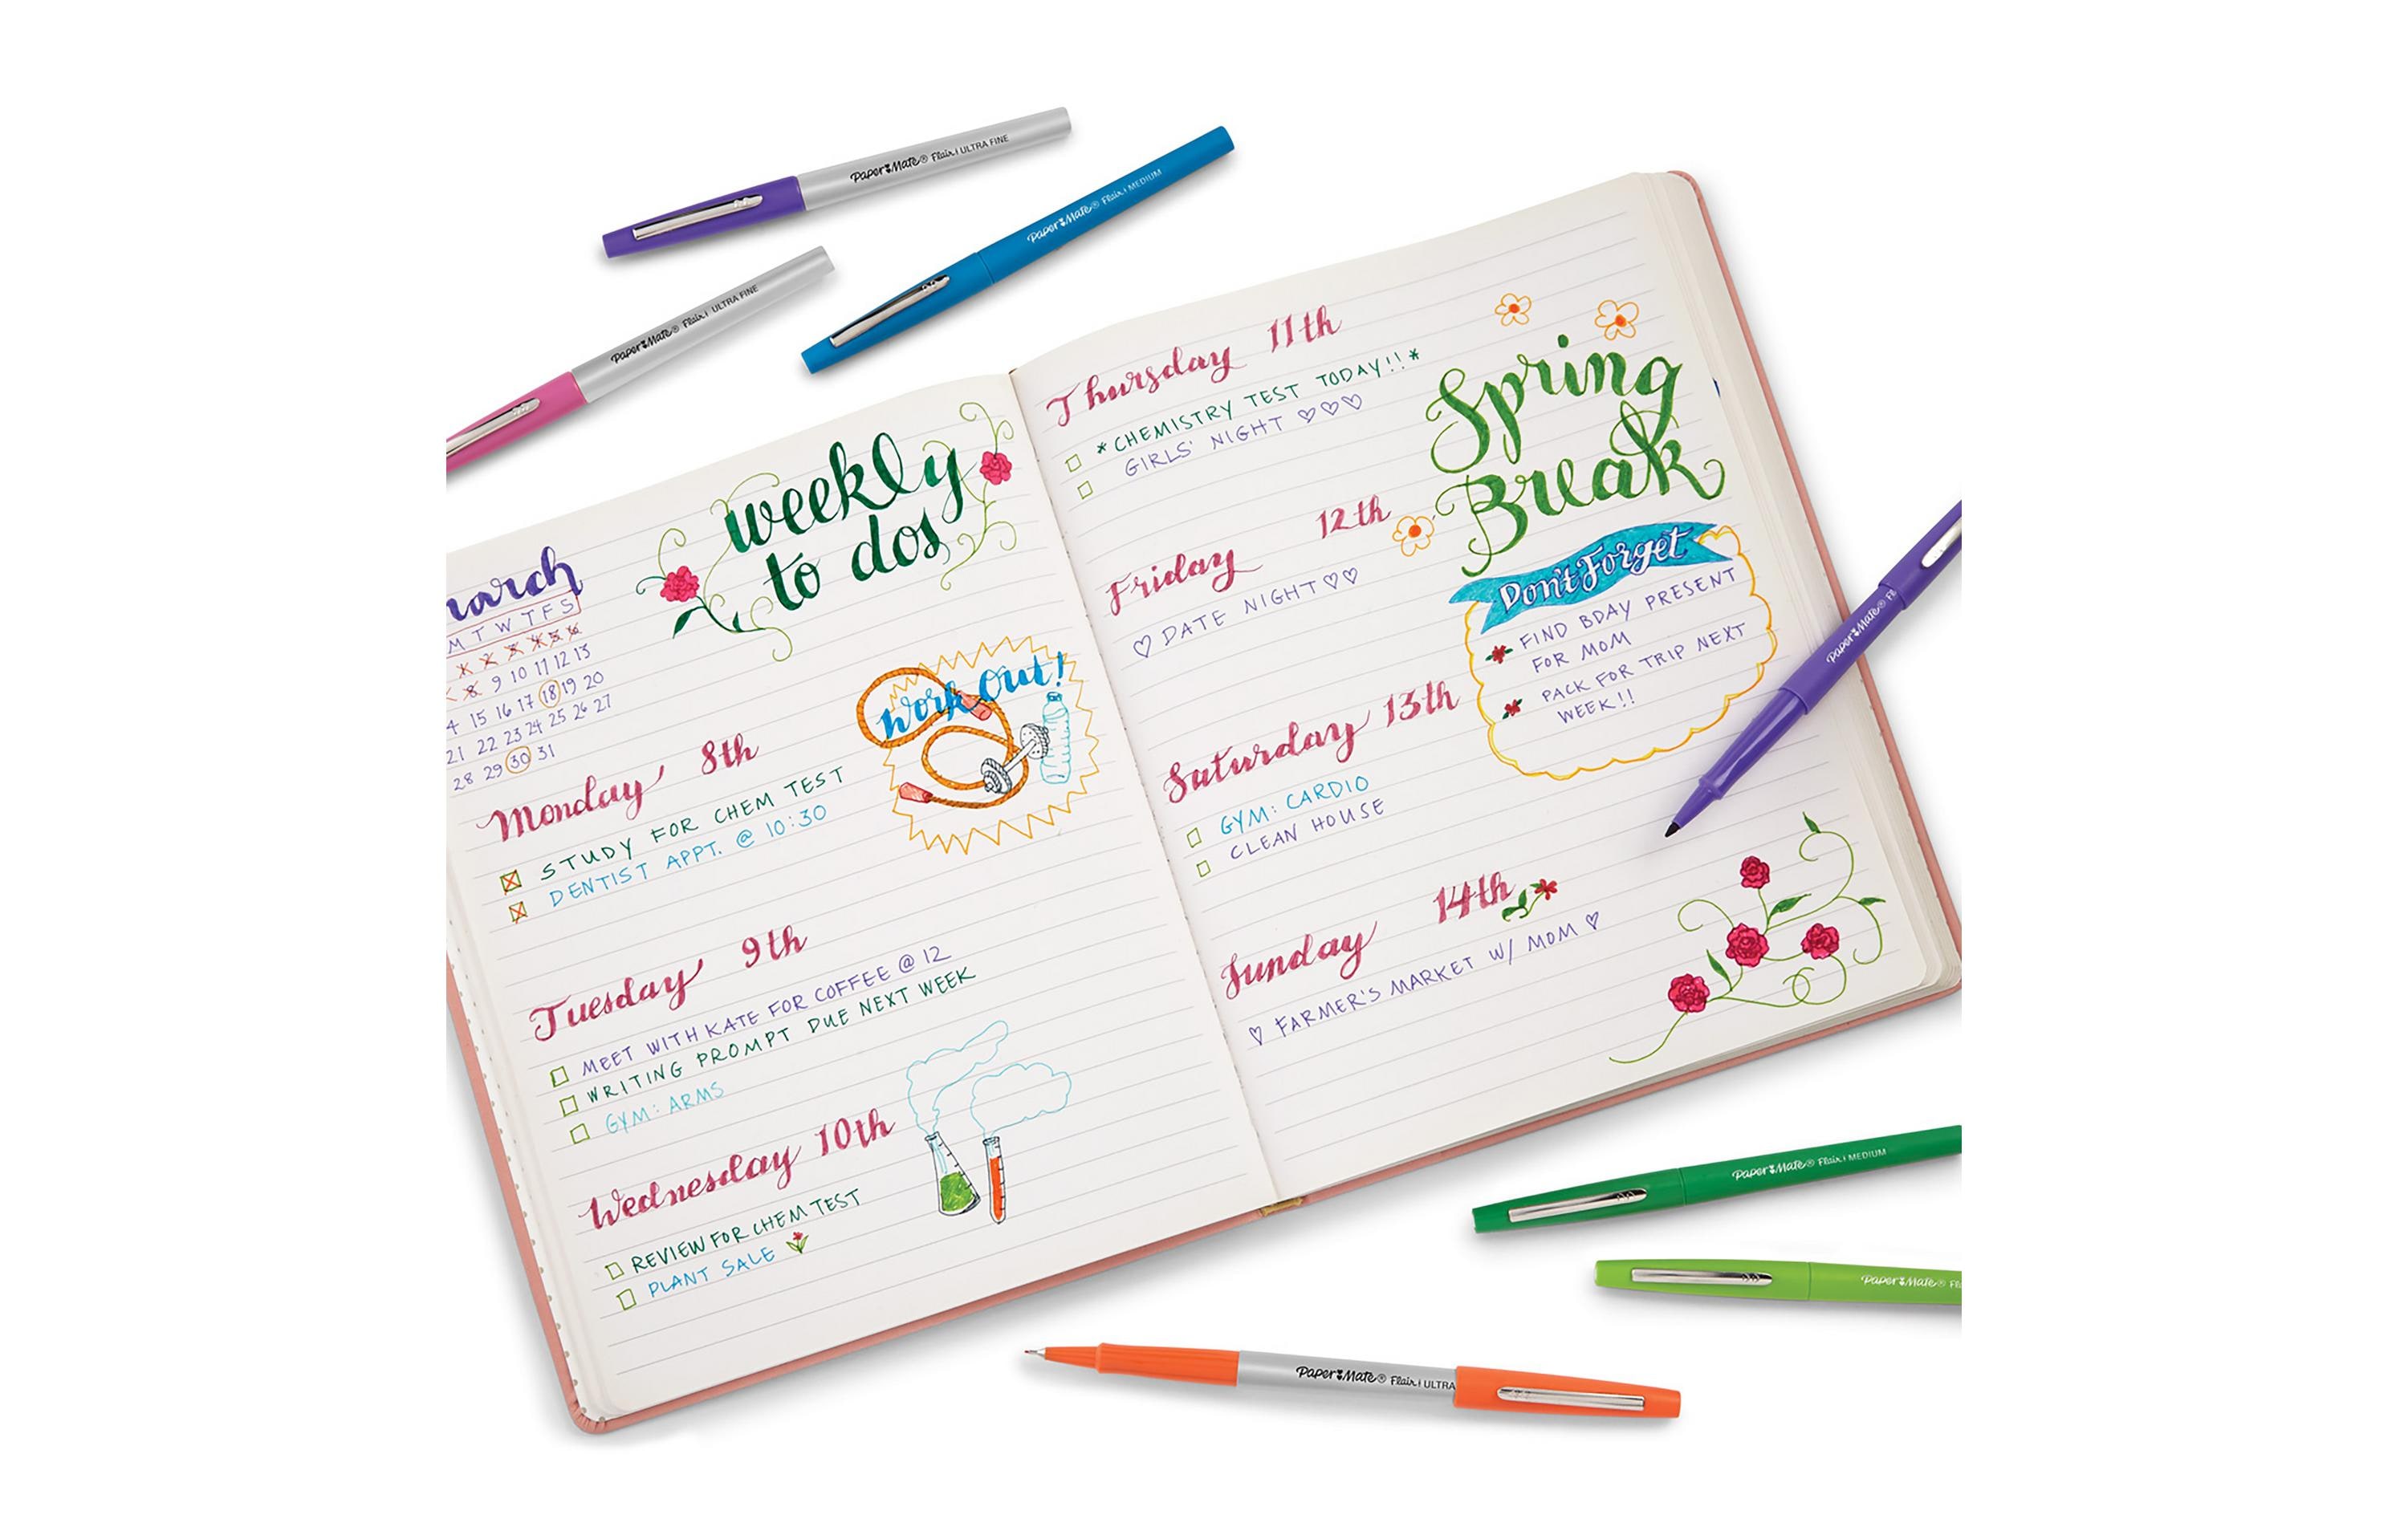 Paper Mate® Flair ULTRA FINE
Paper Mate® Flair MEDIUM
Paper Mate® Flair ULTRA FINE
weekly
to dos
M T W T F S
9 10 11 12 13
15 16 17 18 19 20
21 22 23 24 25 26 27
28 29 30 31
work out!
Monday 8th
STUDY FOR CHEM TEST
DENTIST APPT. @ 10:30
Tuesday 9th
MEET WITH KATE FOR COFFEE @ 12
WRITING PROMPT DUE NEXT WEEK
GYM: ARMS
Wednesday 10th
REVIEW FOR CHEM TEST
PLANT SALE
Thursday 11th
*CHEMISTRY TEST TODAY!!*
GIRLS' NIGHT ♡♡♡
Friday 12th
♡ DATE NIGHT ♡♡
Saturday 13th
GYM: CARDIO
CLEAN HOUSE
Sunday 14th
♡ FARMER'S MARKET W/ MOM ♡
Spring
Break
Don't Forget
FIND BDAY PRESENT
FOR MOM
PACK FOR TRIP NEXT
WEEK!!
Paper Mate®
Paper Mate® Flair MEDIUM
Paper Mate®
Paper Mate® Flair ULTRA